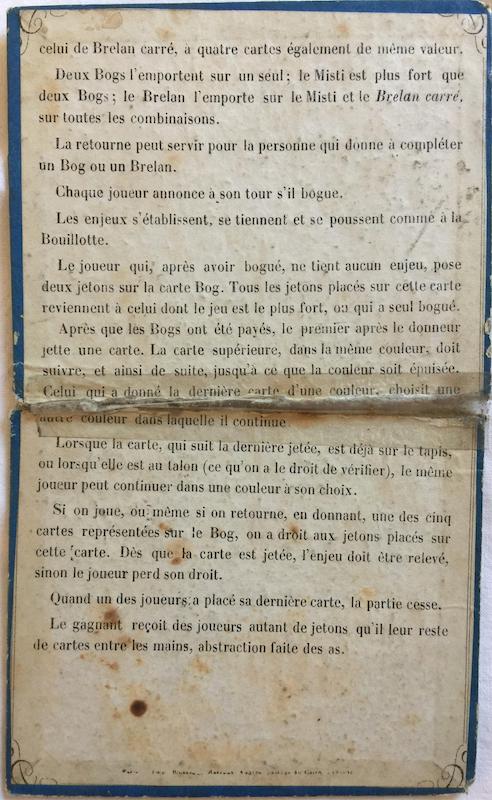 celui de Brelan carré, a quatre cartes également de même valeur.
Deux Bogs l'emportent sur un seul ; le Misti est plus fort que
deux Bogs ; le Brelan l'emporte sur le Misti et le Brelan carré,
sur toutes les combinaisons.
La retourne peut servir pour la personne qui donne à compléter
un Bog ou un Brelan.
Chaque joueur annonce à son tour s'il bogue.
Les enjeux s'établissent, se tiennent et se poussent comme à la
Bouillotte.
Le joueur qui, après avoir bogué, ne tient aucun enjeu, pose
deux jetons sur la carte Bog. Tous les jetons placés sur cette carte
reviennent à celui dont le jeu est le plus fort, ou qui a seul bogué.
Après que les Bogs ont été payés, le premier après le donneur
jette une carte. La carte supérieure, dans la même couleur, doit
suivre, et ainsi de suite, jusqu'à ce que la couleur soit épuisée.
Celui qui a donné la dernière carte d'une couleur, choisit une
autre couleur dans laquelle il continue.
Lorsque la carte, qui suit la dernière jetée, est déjà sur le tapis,
ou lorsqu'elle est au talon (ce qu'on a le droit de vérifier), le même
joueur peut continuer dans une couleur à son choix.
Si on joue, ou même si on retourne, en donnant, une des cinq
cartes représentées sur le Bog, on a droit aux jetons placés sur
cette carte. Dès que la carte est jetée, l'enjeu doit être relevé,
sinon le joueur perd son droit.
Quand un des joueurs a placé sa dernière carte, la partie cesse.
Le gagnant reçoit des joueurs autant de jetons qu'il leur reste
de cartes entre les mains, abstraction faite des as.
Paris